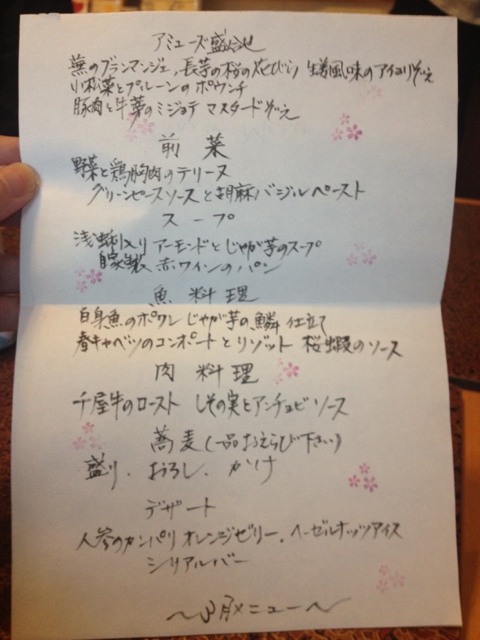 アミューズ盛り
蕪のブランマンジェ、長芋の桜の花びら 生姜風味のアイヨリぞえ
小松菜とプルーンのポウンチ
豚肉と牛蒡のミジョテ マスタードぞえ
前菜
野菜と鶏胸肉のテリーヌ
グリーンピースソースと胡麻バジルペースト
スープ
浅蜊入り アーモンドとじゃが芋のスープ
自家製 赤ワインのパン
魚料理
白身魚のポワレ じゃが芋の鱗仕立て
春キャベツのコンポートとリゾット 桜蝦のソース
肉料理
千屋牛のロースト しその実とアンチョビソース
蕎麦(一品おえらび下さい)
盛り. おろし. かけ
デザート
人参のカンパリオレンジゼリー. ヘーゼルナッツアイス
シリアルバー
～3月メニュー～